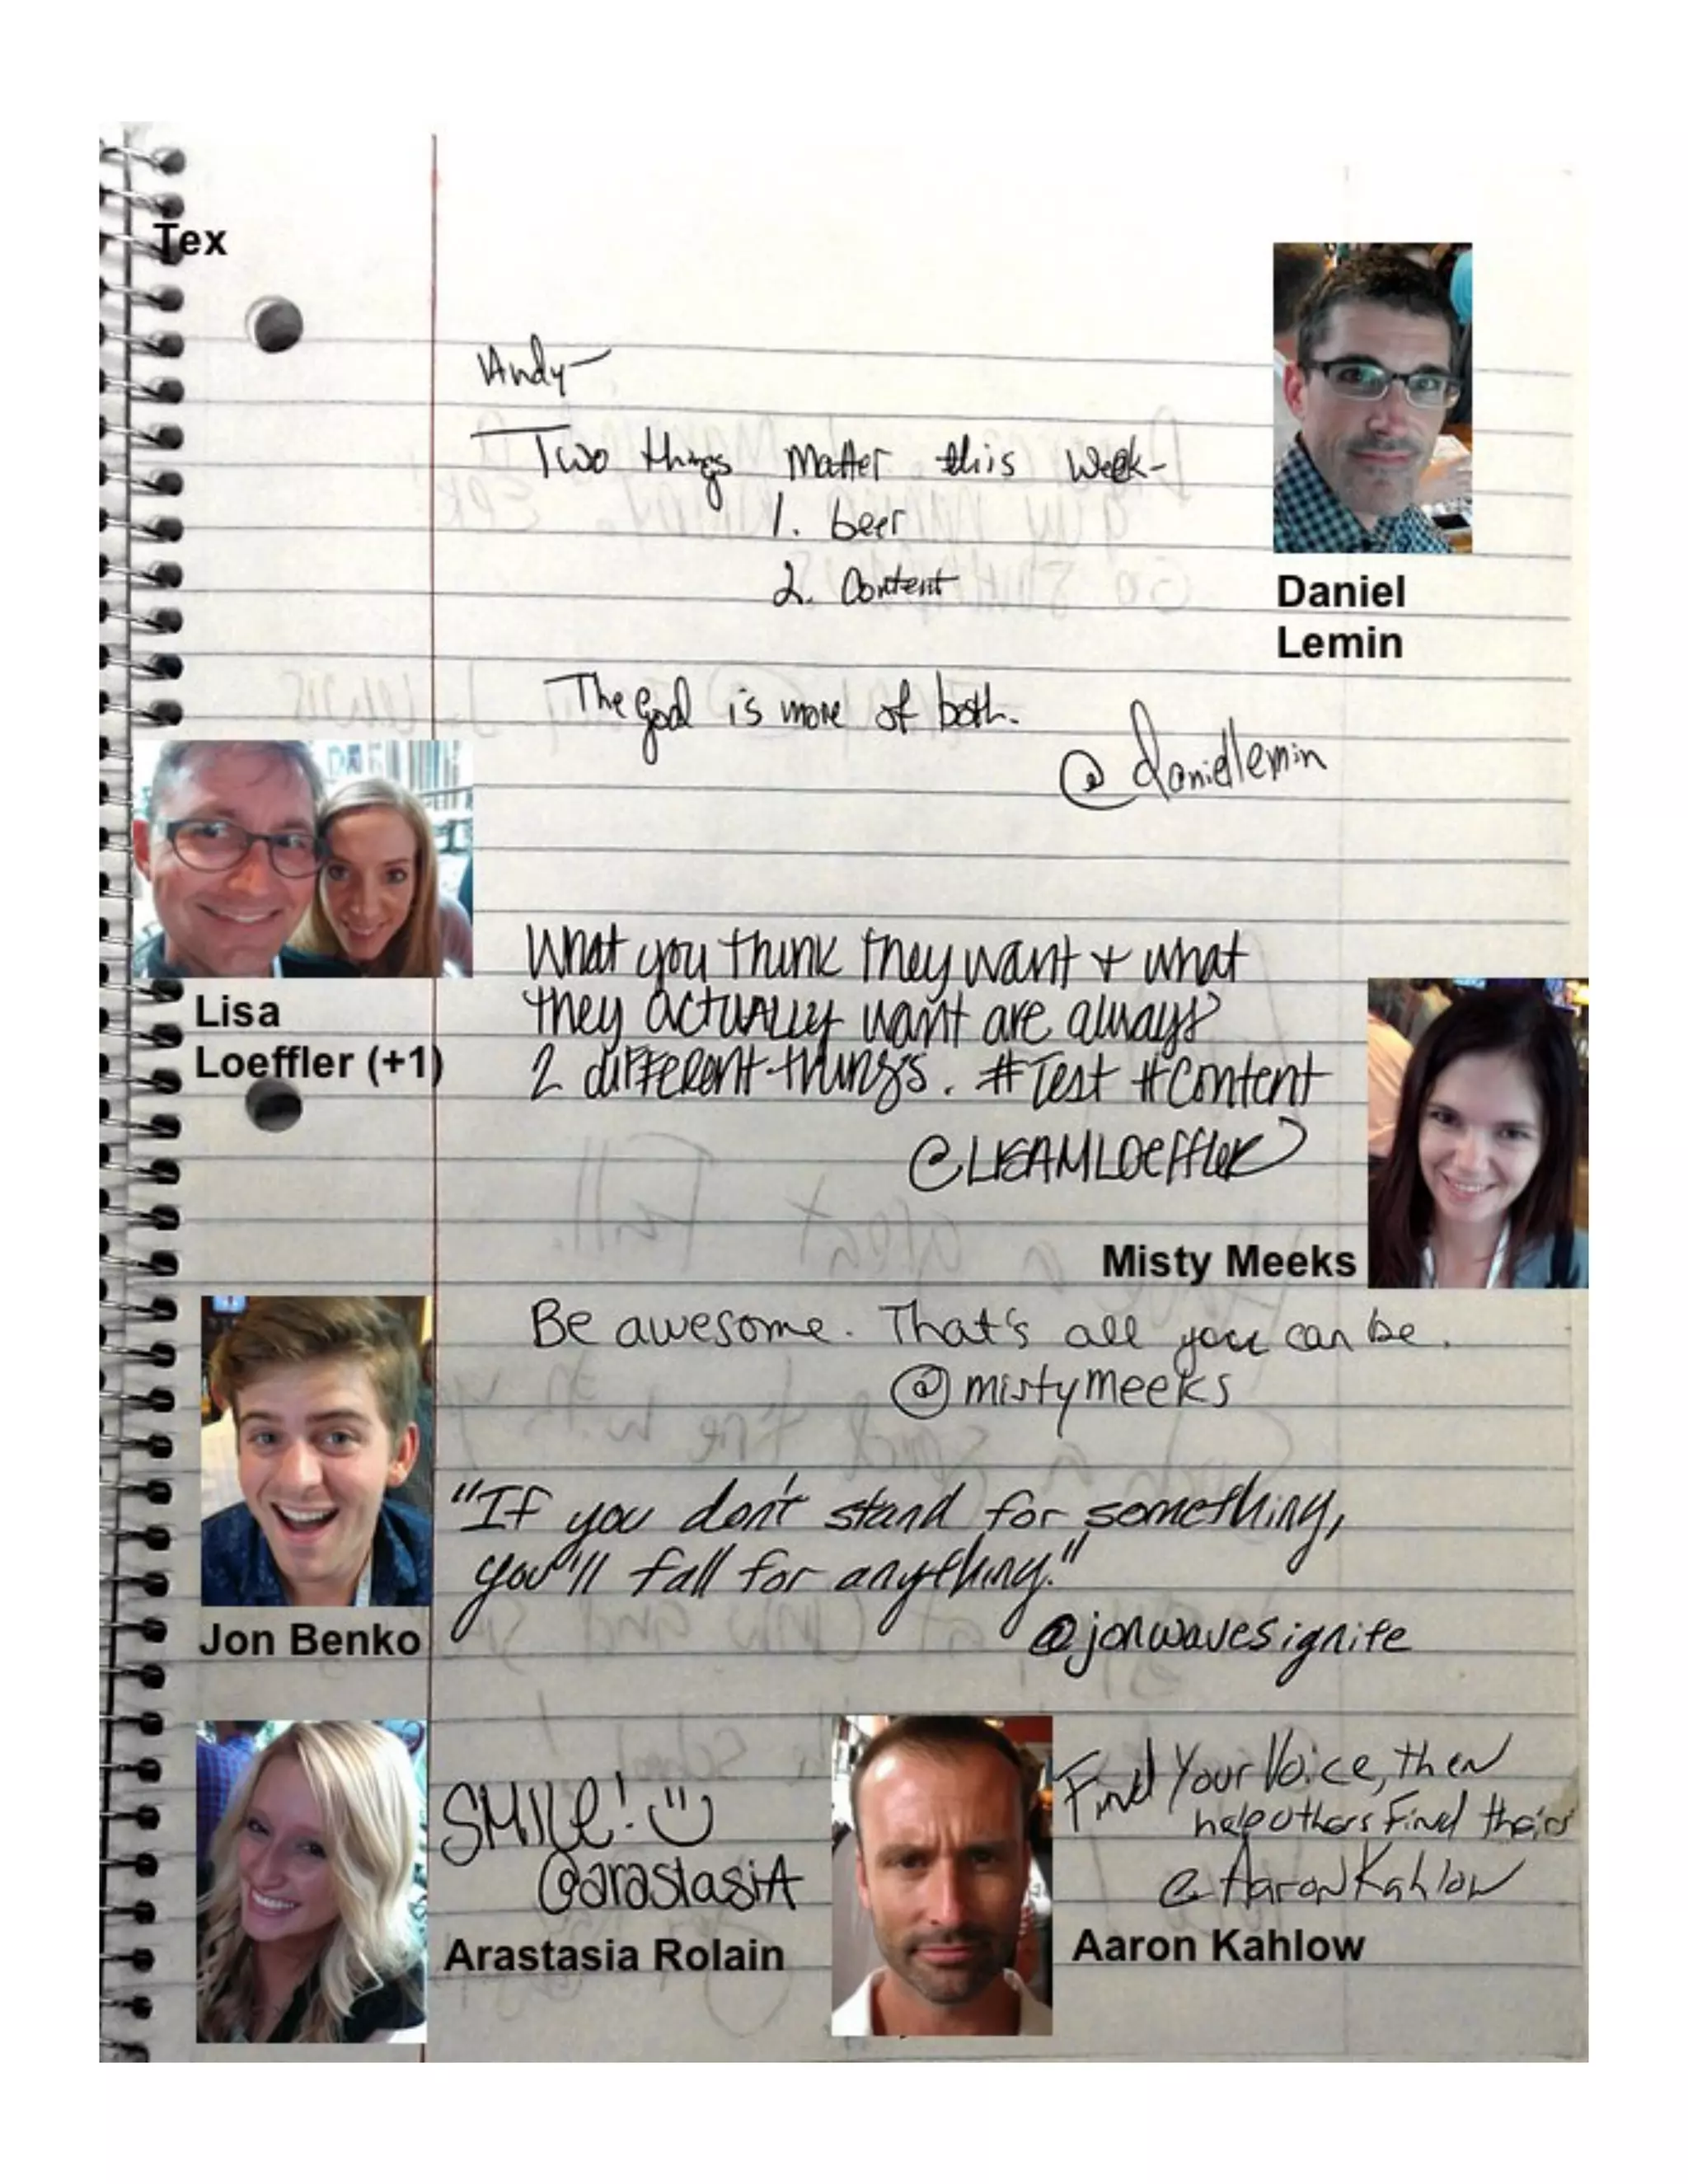 Tex
Andy-
Two things matter this week-
1. beer
2. Content
Daniel
Lemin
The goal is more of both.
@daniellemin
What you think they want + what
they actually want are always
2 different things. #Test #Content
@LISAMLOEFFLER
Lisa
Loeffler (+1)
Misty Meeks
Be awesome. That's all you can be.
@mistymeeks
"If you don't stand for something,
you'll fall for anything."
@jonwavesignite
Jon Benko
SMILE! :)
@arastasiA
Arastasia Rolain
Find Your Voice, then
help others Find theirs
@AaronKahlow
Aaron Kahlow